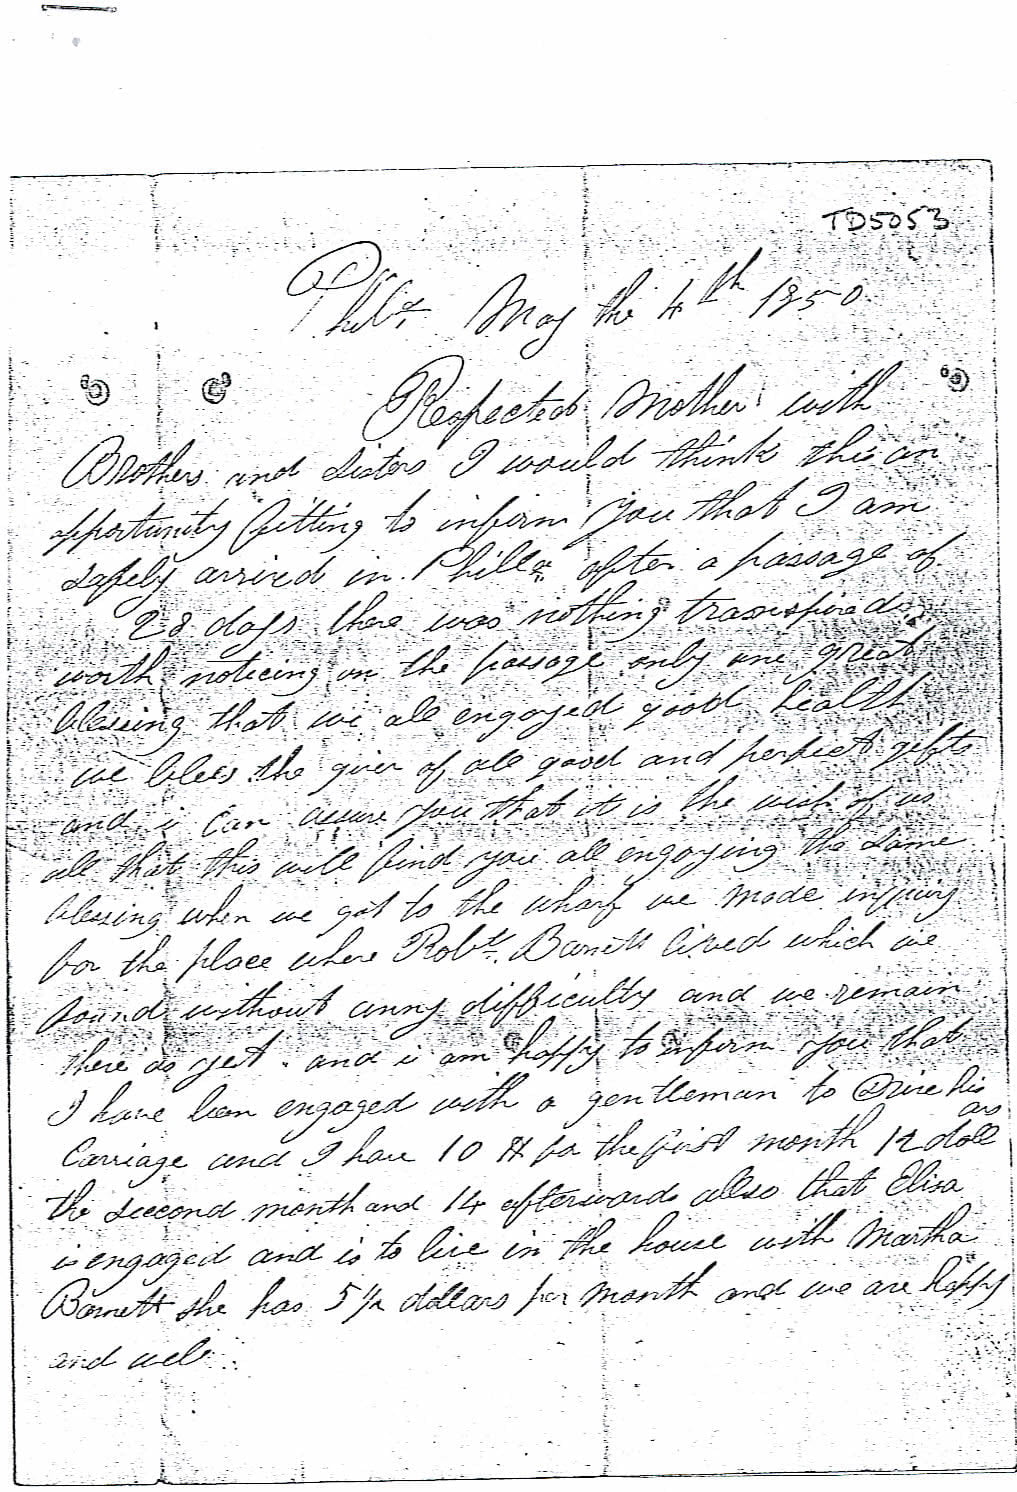 TD5053
Phila. May the 4th 1850
Respected Mother with
Brothers and Sisters I would think this an
opportunity fitting to inform you that I am
safely arrived in Philla. after a passage of
28 days there was nothing transpired
worth noticing on the passage only one great
blessing that we all engoyed good health
we bless the giver of all good and perfect gifts
and i can assure you that it is the wish of us
all that this will find you all engoying the same
blessing when we got to the wharf we made inquiry
for the place where Robt. Barnett lived which we
found without anny difficulty and we remain
there as yet. and i am happy to inform you that
I have been engaged with a gentleman to Drive his
Carriage and I have 10 $ for the first month 12 dollars
the seecond month and 14 afterwards allso that Elisa
is engaged and is to live in the house with Martha
Barnett she has 5 1/2 dollars per month and we are happy
and well